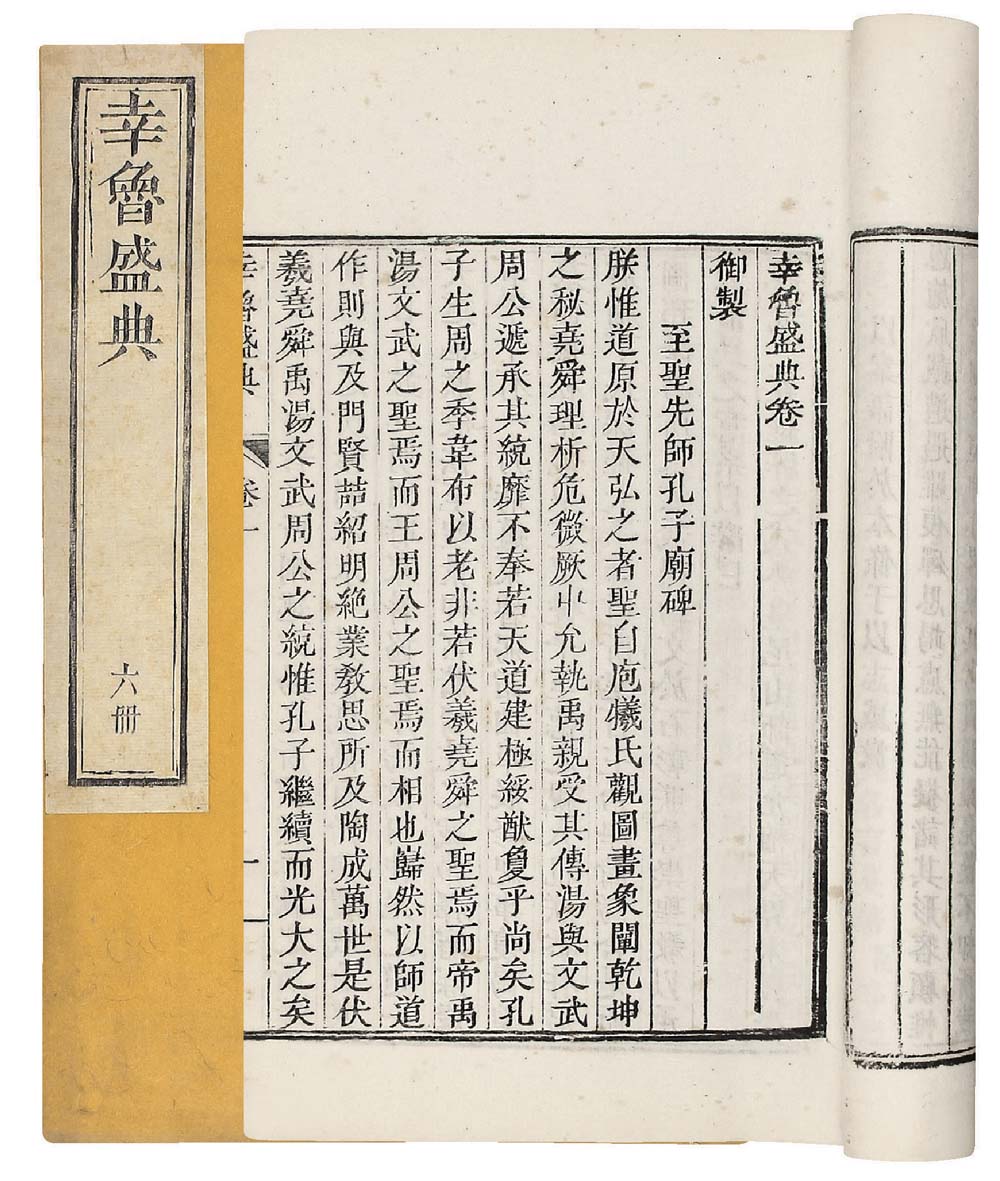 幸魯盛典
六冊
幸魯盛典卷一
御製
至聖先師孔子廟碑
朕惟道原於天弘之者聖自庖犧氏觀圖畫象闡乾坤
之秘堯舜理析危微厥中允執禹親受其傳湯與文武
周公遞承其統靡不奉若天道建極綏猷敻乎尚矣孔
子生周之季韋布以老非若伏羲堯舜之聖焉而帝禹
湯文武之聖焉而王周公之聖焉而相也巋然以師道
作則與及門賢喆紹明絕業敎思所及陶成萬世是伏
羲堯舜禹湯文武周公之統惟孔子繼續而光大之矣
幸魯盛典 卷一 一